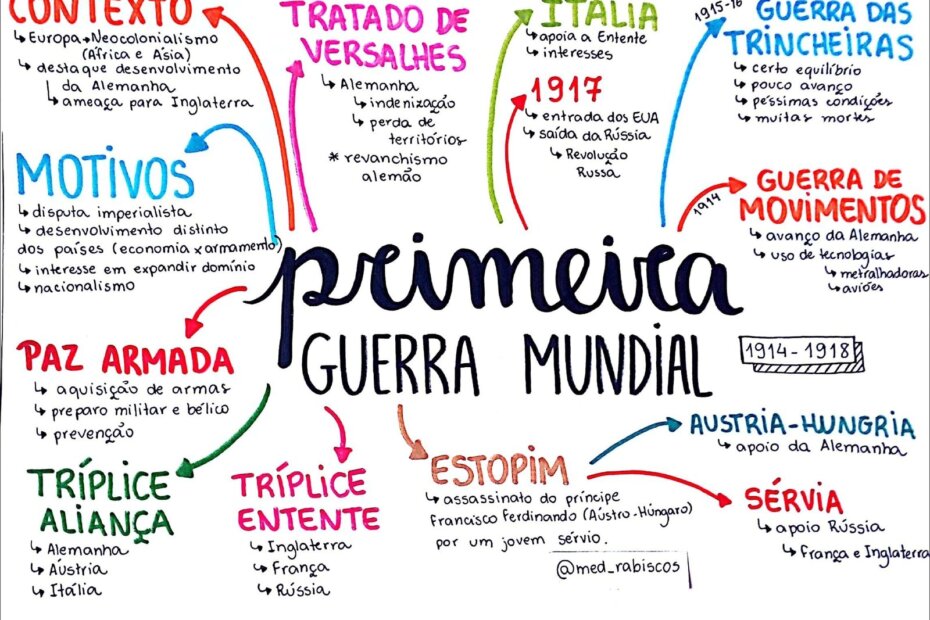 CONTEXTO
↳ Europa → Neocolonialismo
(África e Ásia)
↳ destaque desenvolvimento
da Alemanha
↳ ameaça para Inglaterra
TRATADO DE
VERSALHES
↳ Alemanha
↳ indenização
↳ perda de
territórios
* revanchismo
alemão
ITÁLIA
↳ apoia a Entente
↳ interesses
1917
↳ entrada dos EUA
↳ saída da Rússia
↳ Revolução
Russa
1915-16
GUERRA DAS
TRINCHEIRAS
↳ certo equilíbrio
↳ pouco avanço
↳ péssimas condições
↳ muitas mortes
MOTIVOS
↳ disputa imperialista
↳ desenvolvimento distinto
dos países (economia x armamento)
↳ interesse em expandir domínio
↳ nacionalismo
1914
GUERRA DE
MOVIMENTOS
↳ avanço da Alemanha
↳ uso de tecnologias
↳ metralhadoras
↳ aviões
primeira
GUERRA MUNDIAL
1914 - 1918
PAZ ARMADA
↳ aquisição de armas
↳ preparo militar e bélico
↳ prevenção
TRÍPLICE
ALIANÇA
↳ Alemanha
↳ Aústria
↳ Itália
TRÍPLICE
ENTENTE
↳ Inglaterra
↳ França
↳ Rússia
ESTOPIM
↳ assassinato do príncipe
Francisco Ferdinando (Aústro-Húngaro)
por um jovem sérvio.
@med_rabiscos
AUSTRIA-HUNGRIA
↳ apoio da Alemanha
SÉRVIA
↳ apoio Rússia
↳ França e Inglaterra